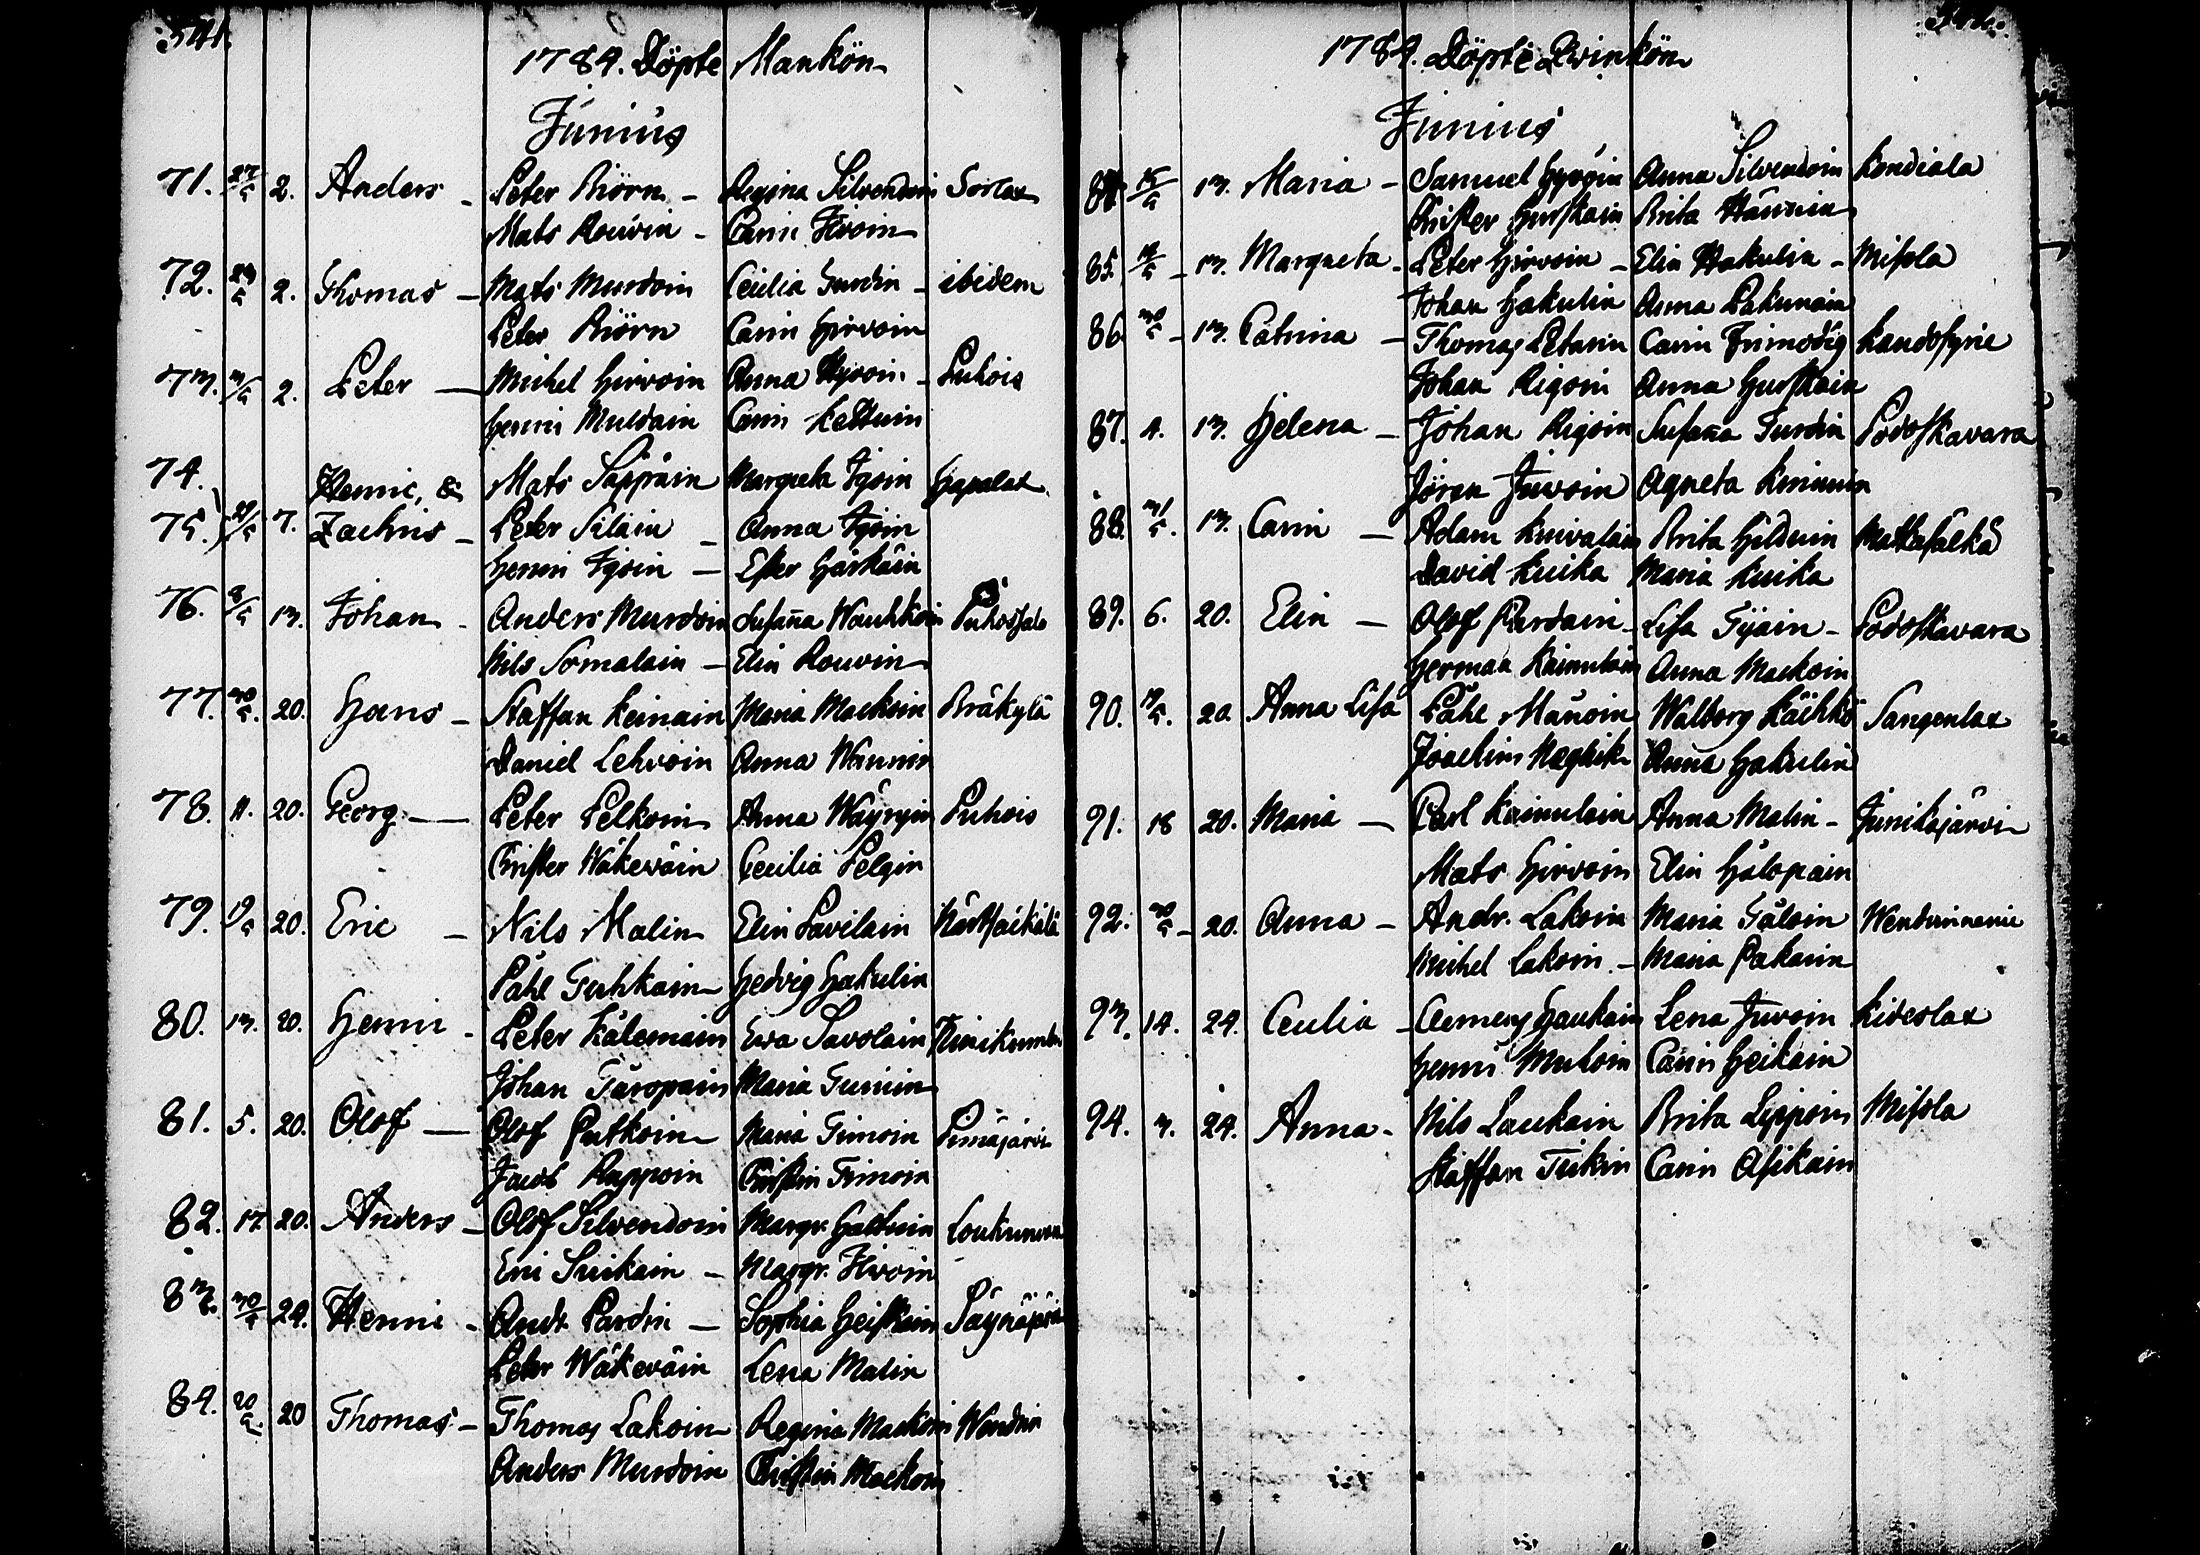 541.
1784. Döpte Mankön
Junius
71. 27/5 2. Anders - Peter Biörn - Regina Silvendoin Sorlax
Mats Rouvin - Carin Hirvoin
72. 23/5 2. Thomas - Mats Murdoin Cecilia Turdin - ibidem
Peter Biörn Carin Hirvoin
73. 3/5 2. Peter - Michel Hirvoin Anna Hyvoin - Puhois
Henric Muldain Carin Kettuin
74. Henric, & Mats Säppäin Margreta Igoin Hapalax
75. 29/5 7. Zachris - Peter Siläin - Anna Igoin
Henric Igoin - Ester Härkäin
76. 8/5 13. Johan - Anders Murdoin Susaña Wauhkoin
Nils Somalain - Elin Rouvin
77. 30/5. 20. Hans - Staffan Keinain Maria Mackoin Bräkylä
Daniel Lehvoin Anna Wännin
78. 11. 20. Georg - Peter Pelkoin Anna Wäyryin Puhois
Christer Wäkeväin Cecilia Pelgin
79. 20. Eric - Nils Malin Elin Pavilain
Påhl Tuhkain Hedvig Hakulin
80. 13. 20. Henric - Peter Kälemäin Ewa Savolain
Johan Täropain Maria Turuin
81. 5. 20. Olof - Olof Putkoin Maria Timoin
Jacob Rappoin Christin Timoin
82. 17 20. Anders - Olof Silvendoin Margr.
Eric Suikain - Margr. Hirvoin
83. 30/5 24. Henric - Andr. Pardin - Sophia Heiskain
Peter Wäkeväin Lena Malin
84. 20/5. 20 Thomas - Thomas Lakoin Regina Mackoin
Anders Murdoin Christin Mackoin
1784. Döpte Qwinkön
Junius
84. 15/5 13. Maria - Samuel Hyvöin Anna Silvendoin Kondiala
Christer Hurskain Brita Hännin
85. - 13. Margreta - Peter Hirvoin - Elin Hakulin - Misola
Johan Hakulin Anna Pakunain
86 30/5 - 13. Catrina - Thomas Petasin Carin Frimodig
Johan Rigoin Anna Hurskain
87. 4. 13. Helena - Johan Rigoin Susaña Turdin Podoskavara
Jören Juvoin Agneta Kinnuin
88. 31/5. 13. Carin - Adam Kuivalain Brita Hilduin Matkasälkä
David Kuika Maria Kuika
89. 6. 20. Elin - Olof Purdain - Lisa Tijain - Podoskavara
Herman Kainulain Anna Mackoin
90. 20 Anna Lisa Påhl Mänoin Walborg Käihkö Sangenlax
Joachim Anna Hakulin
91. 18 20. Maria - Carl Kainulain Anna Malin - Junikajärvi
Mats Hirvoin Elin Hålopain
92. 30/5 - 20. Anna - Andr. Lakoin Maria Tåloin
Michel Lakoin - Maria Pakarin
93. 14. 24. Cecilia - Clemens Haukain Lena Juvoin Kideslax
Henric Muloin Carin Heikain
94. 3. 24. Anna - Nils Laukain Brita Lipposin Misola
Staffan Tuikin Carin Asikain